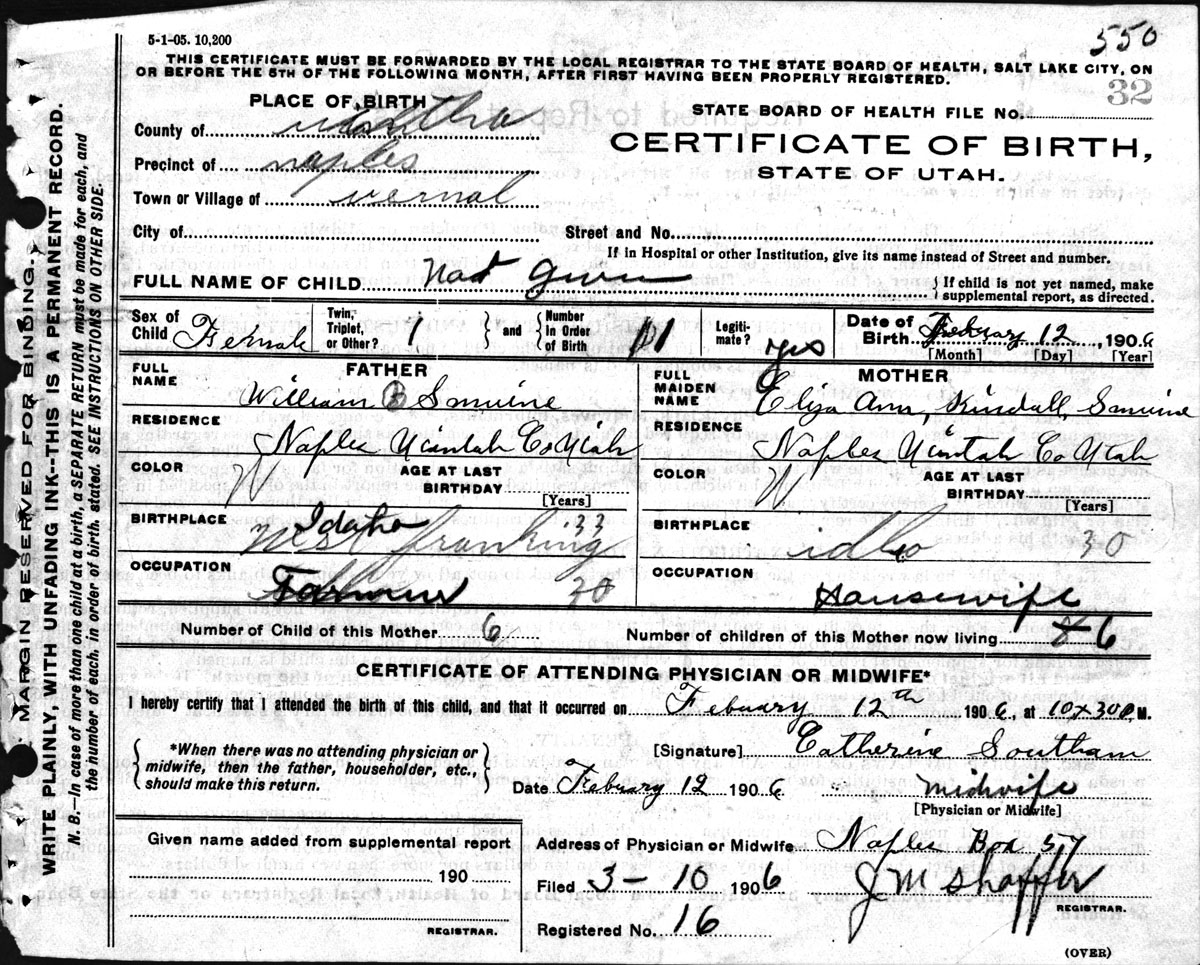 5-1-05. 10,200
550
THIS CERTIFICATE MUST BE FORWARDED BY THE LOCAL REGISTRAR TO THE STATE BOARD OF HEALTH, SALT LAKE CITY, ON
OR BEFORE THE 5TH OF THE FOLLOWING MONTH, AFTER FIRST HAVING BEEN PROPERLY REGISTERED.
32
PLACE OF BIRTH
STATE BOARD OF HEALTH FILE NO.
County of
CERTIFICATE OF BIRTH,
STATE OF UTAH.
Precinct of naples
Town or Village of vernal
City of
Street and No.
If in Hospital or other Institution, give its name instead of Street and number.
FULL NAME OF CHILD Not Given
If child is not yet named, make
supplemental report, as directed.
Sex of Child Female
Twin, Triplet, or Other? 1 and Number In Order of Birth 1
Legitimate? yes
Date of Birth Febuary 12, 1906
[Month] [Day] [Year]
FATHER
FULL NAME William Smuine
RESIDENCE Naples Uintah Co Utah
COLOR
AGE AT LAST BIRTHDAY
[Years]
BIRTHPLACE Idaho 33
OCCUPATION Farmer 30
MOTHER
FULL MAIDEN NAME Eliza Ann, Kindall, Smuine
RESIDENCE Naples Uintah Co Utah
COLOR
AGE AT LAST BIRTHDAY
[Years]
BIRTHPLACE 30
OCCUPATION Housewife
Number of Child of this Mother 6
Number of children of this Mother now living 6
CERTIFICATE OF ATTENDING PHYSICIAN OR MIDWIFE*
I hereby certify that I attended the birth of this child, and that it occurred on Febuary 12th 1906, at 10 30 P. M.
*When there was no attending physician or
midwife, then the father, householder, etc.,
should make this return.
[Signature] Catherine Southam
Date Febuary 12 1906 midwife
[Physician or Midwife]
Given name added from supplemental report
190
REGISTRAR.
Address of Physician or Midwife Naples Box 57
Filed 3-10 1906 J M Shaffer
REGISTRAR.
Registered No. 16
(OVER)
MARGIN RESERVED FOR BINDING.
WRITE PLAINLY, WITH UNFADING INK--THIS IS A PERMANENT RECORD.
N. B.--In case of more than one child at a birth, a SEPARATE RETURN must be made for each, and
the number of each, in order of birth, stated. SEE INSTRUCTIONS ON OTHER SIDE.